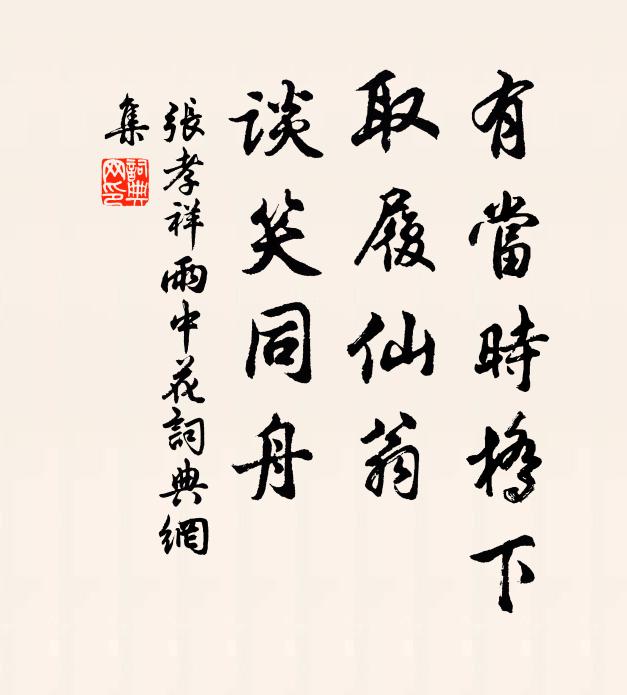 有當時橋下
取履仙翁
談笑同舟
張孝祥雨中花詞典網
集
詞典
网印